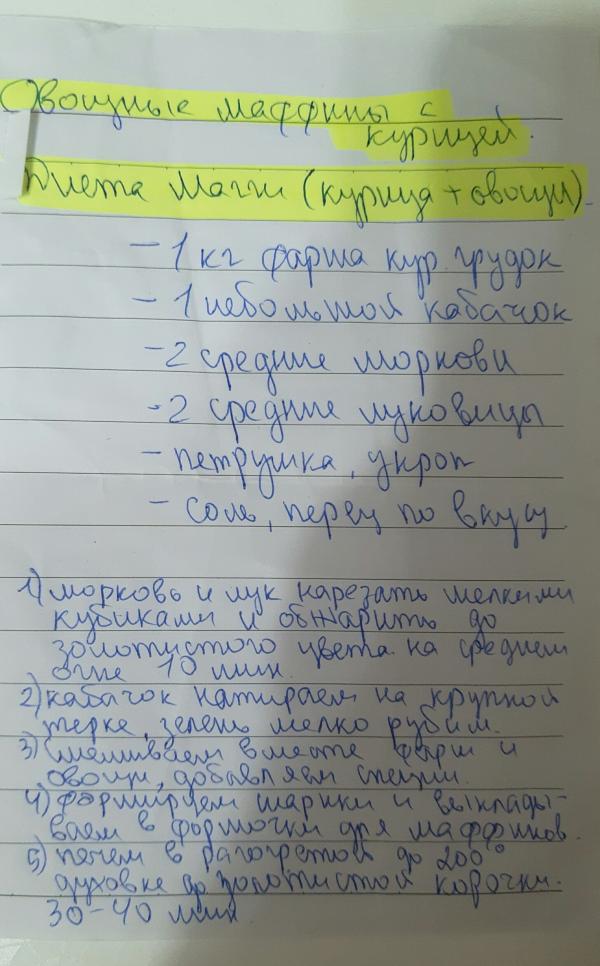 Овощные маффины с
курицей.
Диета Магги (курица + овощи).
- 1 кг фарша кур. грудок
- 1 небольшой кабачок
- 2 средние моркови
- 2 средние луковицы
- петрушка, укроп
- соль, перец по вкусу
1) морковь и лук нарезать мелкими
кубиками и обжарить до
золотистого цвета на среднем
огне 10 мин.
2) кабачок натираем на крупной
терке, зелень мелко рубим.
3) смешиваем вместе фарш и
овощи, добавляем специи.
4) формируем шарики и выклады-
ваем в формочки для маффинов.
5) печем в разогретой до 200°
духовке до золотистой корочки.
30-40 мин